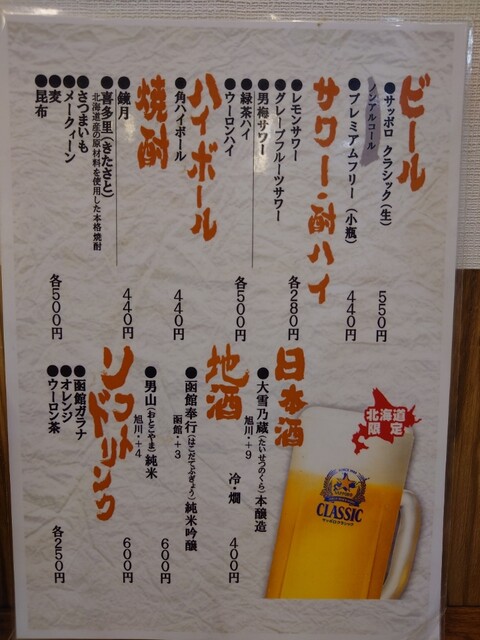 ビール
●サッポロ クラシック(生) 550円
ノンアルコール
●プレミアムフリー(小瓶) 440円
サワー・酎ハイ
●レモンサワー
●グレープフルーツサワー 各280円
●男梅サワー
●緑茶ハイ
●ウーロンハイ 各500円
ハイボール
●角ハイボール 440円
焼酎
●鏡月 440円
●喜多里(きたさと)
北海道産の原材料を使用した本格焼酎
●さつまいも
●メークィーン
●麦
●昆布 各500円
日本酒
●大雪乃蔵(たいせつのくら)本醸造
旭川・+9 冷・燗 400円
地酒
●函館奉行(はこだてぶぎょう)純米吟醸
函館・+3 600円
●男山(おとこやま)純米
旭川・+4 600円
ソフトドリンク
●函館ガラナ
●オレンジ
●ウーロン茶 各250円
北海道
限定
SAPPORO
CLASSIC
サッポロクラシック